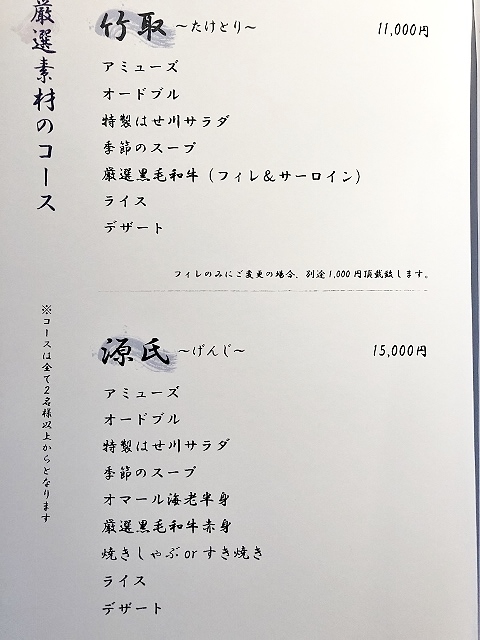 厳選素材のコース
※コースは全て2名様以上からとなります
竹取 ～たけとり～ 11,000円
アミューズ
オードブル
特製はせ川サラダ
季節のスープ
厳選黒毛和牛（フィレ＆サーロイン）
ライス
デザート
フィレのみにご変更の場合、別途1,000円頂戴致します。
源氏 ～げんじ～ 15,000円
アミューズ
オードブル
特製はせ川サラダ
季節のスープ
オマール海老半身
厳選黒毛和牛赤身
焼きしゃぶorすき焼き
ライス
デザート